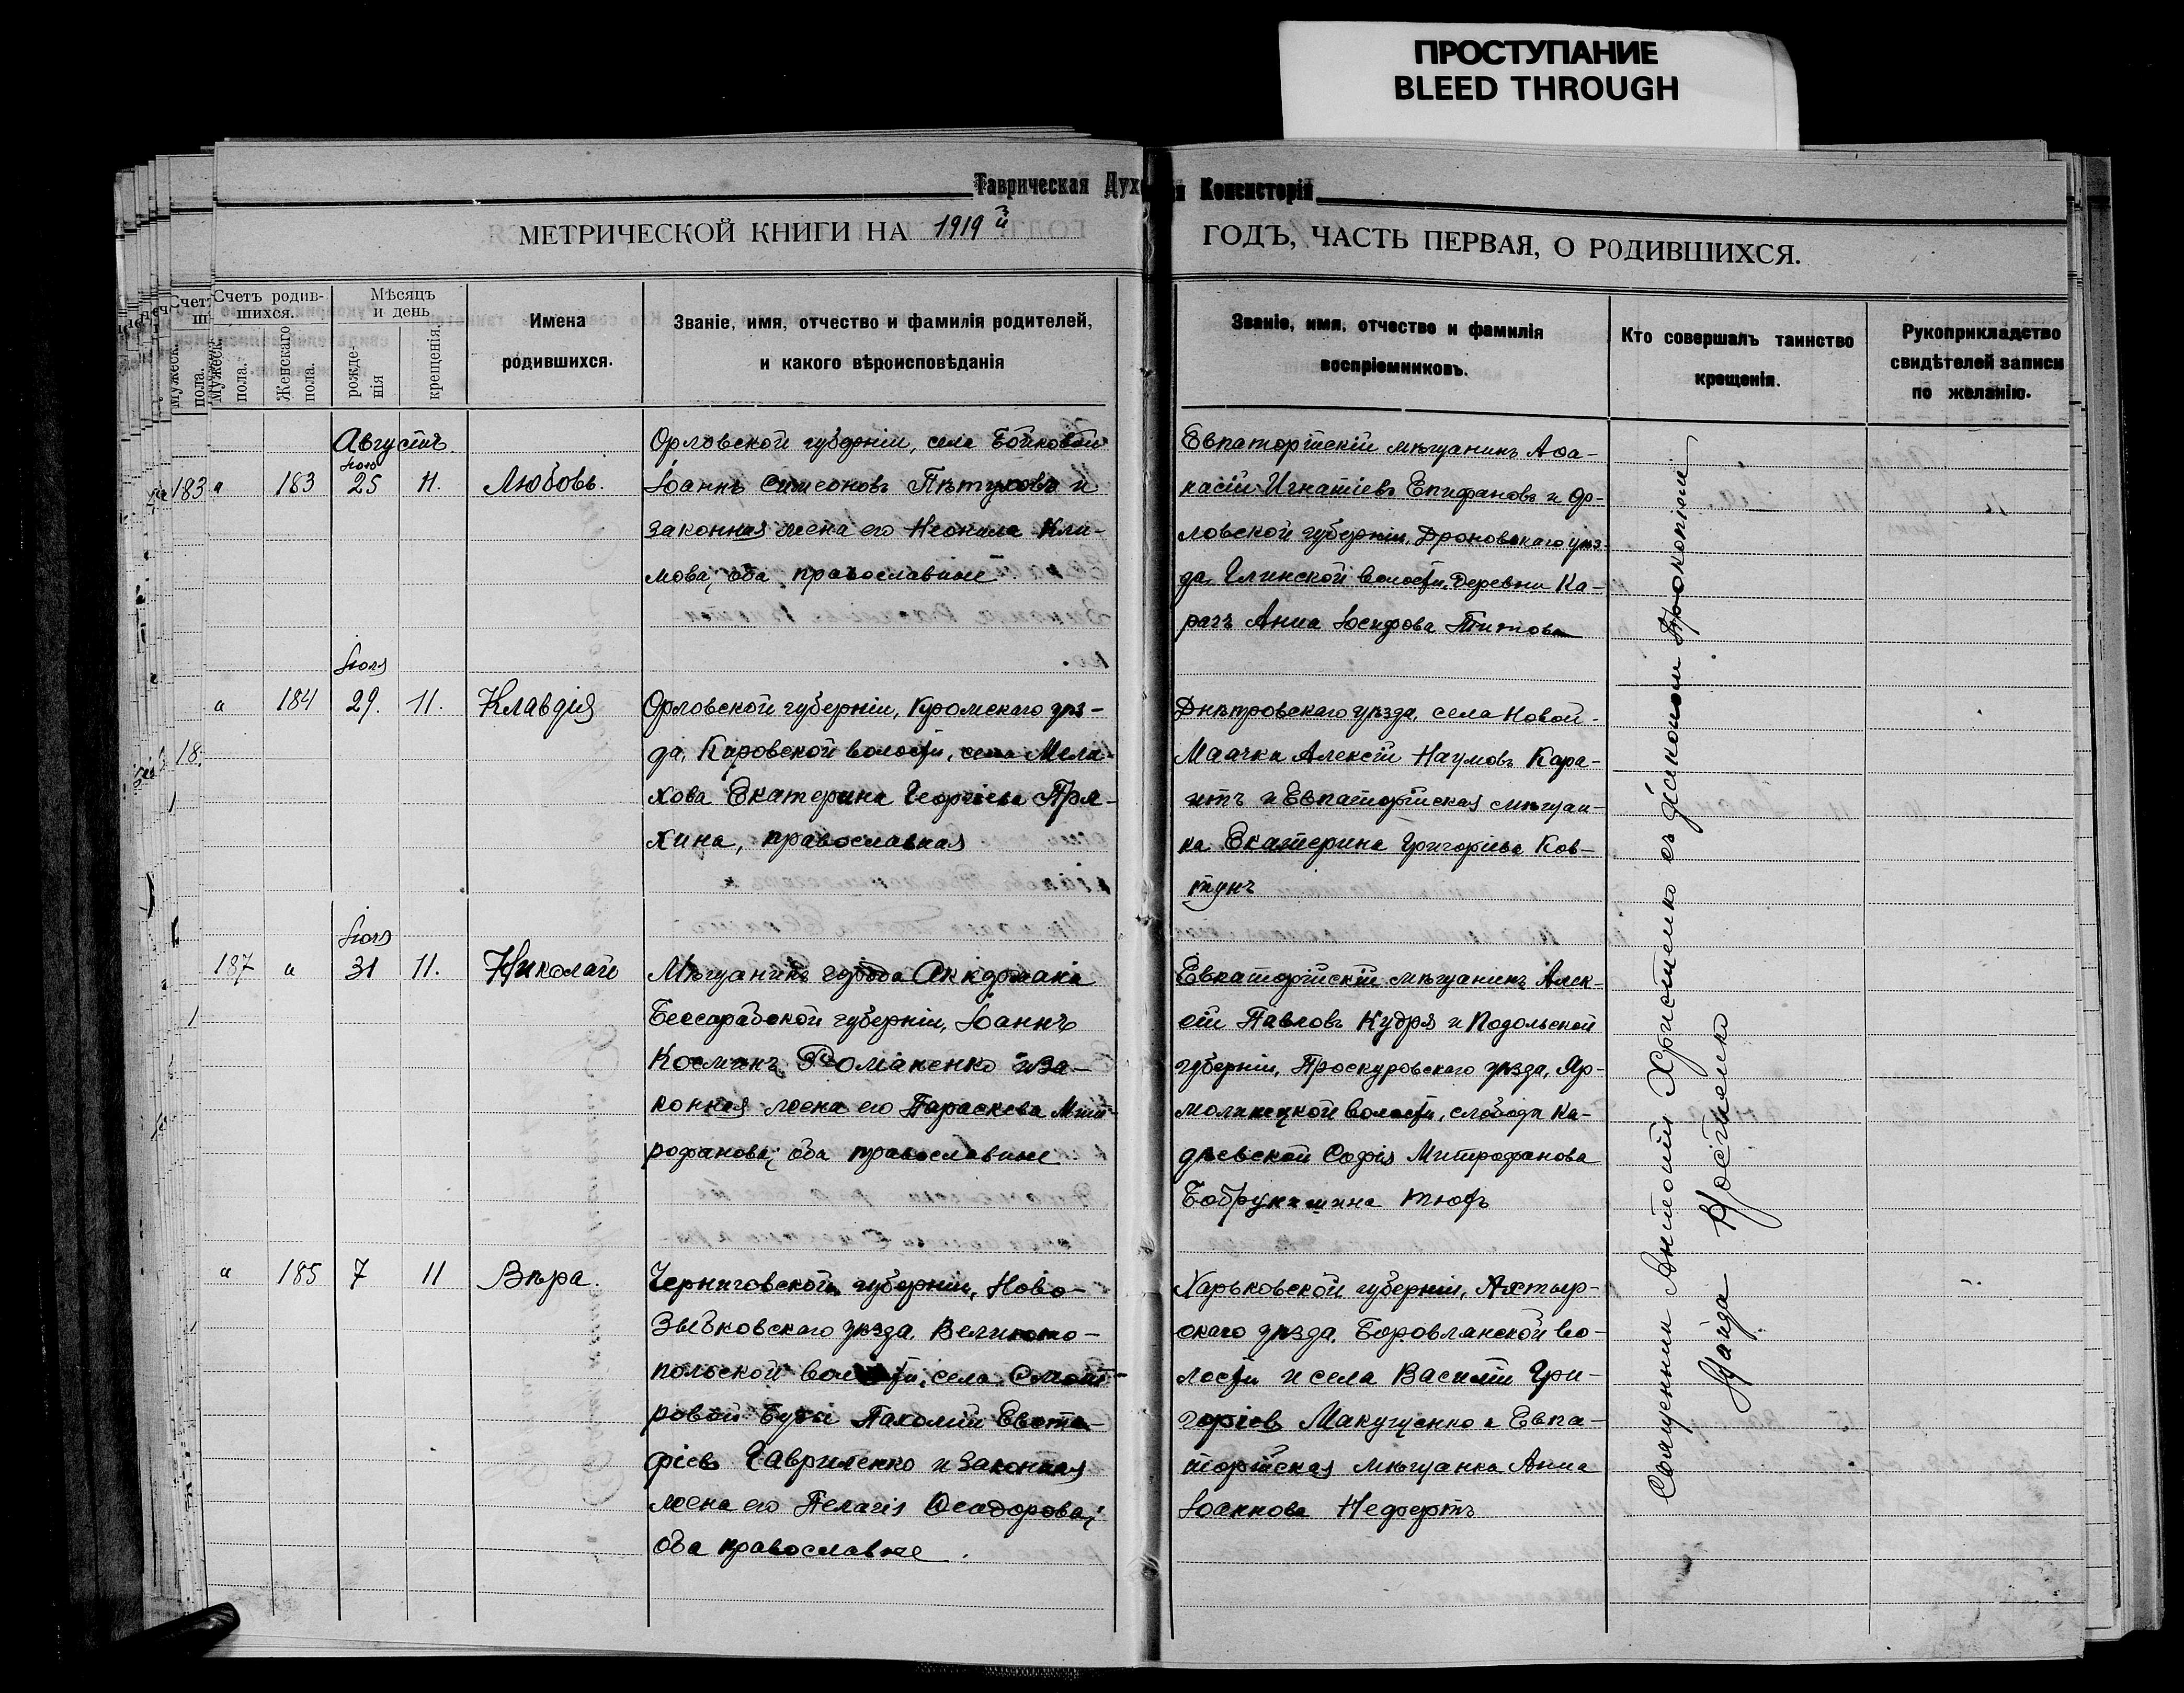 ПРОСТУПАНИЕ
BLEED THROUGH
Таврическая Дух я Консисторія
МЕТРИЧЕСКОЙ КНИГИ НА 1919й
ГОДЪ, ЧАСТЬ ПЕРВАЯ, О РОДИВШИХСЯ.
Счетъ родив-
шихся.
Мужеск. пола.
Женскаго пола.
Мѣсяцъ
и день
рожде-
нія
крещенія.
Имена
родившихся.
Званіе, имя, отчество и фамилія родителей,
и какого вѣроисповѣданія
Званіе, имя, отчество и фамилія
воспріемниковъ.
Кто совершалъ таинство
крещенія.
Рукоприкладство
свидѣтелей записи
по желанію.
Августъ.
Іюля
а 183 25 11. Любовь.
Орловской губерніи, села Бойковой
Іоаннъ Симеоновъ Пѣтуховъ и
законная жена его Неонила Кли-
мова, оба православные
Евпаторійскій мѣщанинъ Аѳа-
насій Игнатіевъ Епифановъ и Ор-
ловской губерніи, Дроновскаго уѣз-
да, Глинской волости, деревни Ка-
рагъ Анна Іосифова Титова
Іюля
а 184 29. 11. Клавдія
Орловской губерніи, Кромскаго уѣз-
да, Кировской волости, села Мела-
хова Екатерина Георгіева Пря-
хина, православная
Днѣпровскаго уѣзда, села Новой-
Маачки Алексій Наумовъ Кара-
итъ и Евпаторійская мѣщан-
ка Екатерина Григоріева Ков-
тунъ
Іюля
187 а 31 11. Николай
Мѣщанинъ города Аккермана
Бессарабской губерніи, Іоаннъ
Косминъ Романенко и за-
конная жена его Параскева Мит-
рофанова, оба православные
Евпаторійскій мѣщанинъ Алек-
сій Павловъ Кудря и Подольской
губерніи, Проскуровскаго уѣзда, Яр-
молинецкой волости, слобода Ка-
дѣевской Софія Митрофанова
а 185 7 11 Вѣра.
Черниговской губерніи, Ново-
Зыбковскаго уѣзда, Великото-
польской волости, села
Буды Пахомій Евста-
фіевъ Гавриленко и законная
жена его Пелагія Ѳеодорова,
оба православные.
Харьковской губерніи, Ахтыр-
скаго уѣзда, Боровлянской во-
лости и села Василій Гри-
горіевъ Макущенко и Евпа-
торійская мѣщанка Анна
Іоаннова Нефертъ
Священникъ Антоній Христенко съ діакономъ Прокопіемъ
Костенко